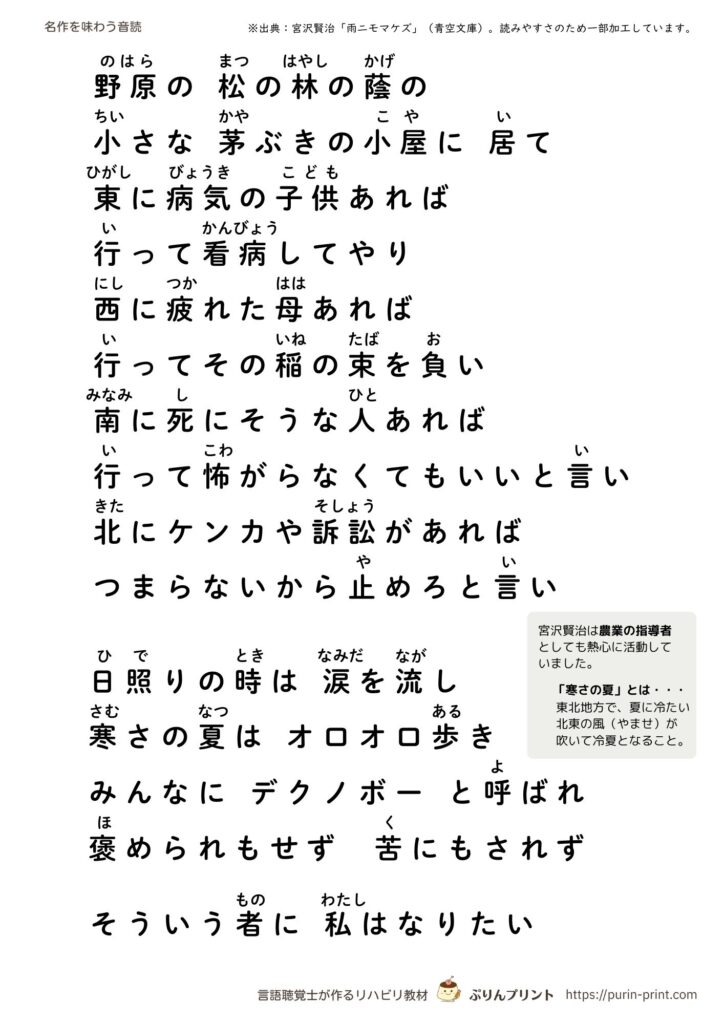 名作を味わう音読
※出典：宮沢賢治「雨ニモマケズ」（青空文庫）。読みやすさのため一部加工しています。
のはら まつ はやし かげ
野原の 松の林の蔭の
ちい かや こ や い
小さな 茅ぶきの小屋に 居て
ひがし びょうき こども
東に病気の子供あれば
い かんびょう
行って看病してやり
にし つか はは
西に疲れた母あれば
い いね たば お
行ってその稲の束を負い
みなみ し ひと
南に死にそうな人あれば
い こわ い
行って怖がらなくてもいいと言い
きた そしょう
北にケンカや訴訟があれば
や い
つまらないから止めろと言い
ひ で とき なみだ なが
日照りの時は 涙を流し
さむ なつ ある
寒さの夏は オロオロ歩き
よ
みんなに デクノボー と呼ばれ
ほ く
褒められもせず 苦にもされず
もの わたし
そういう者に 私はなりたい
宮沢賢治は農業の指導者
としても熱心に活動して
いました。
「寒さの夏」とは・・・
東北地方で、夏に冷たい
北東の風（やませ）が
吹いて冷夏となること。
言語聴覚士が作るリハビリ教材 ぷりんプリント https://purin-print.com/